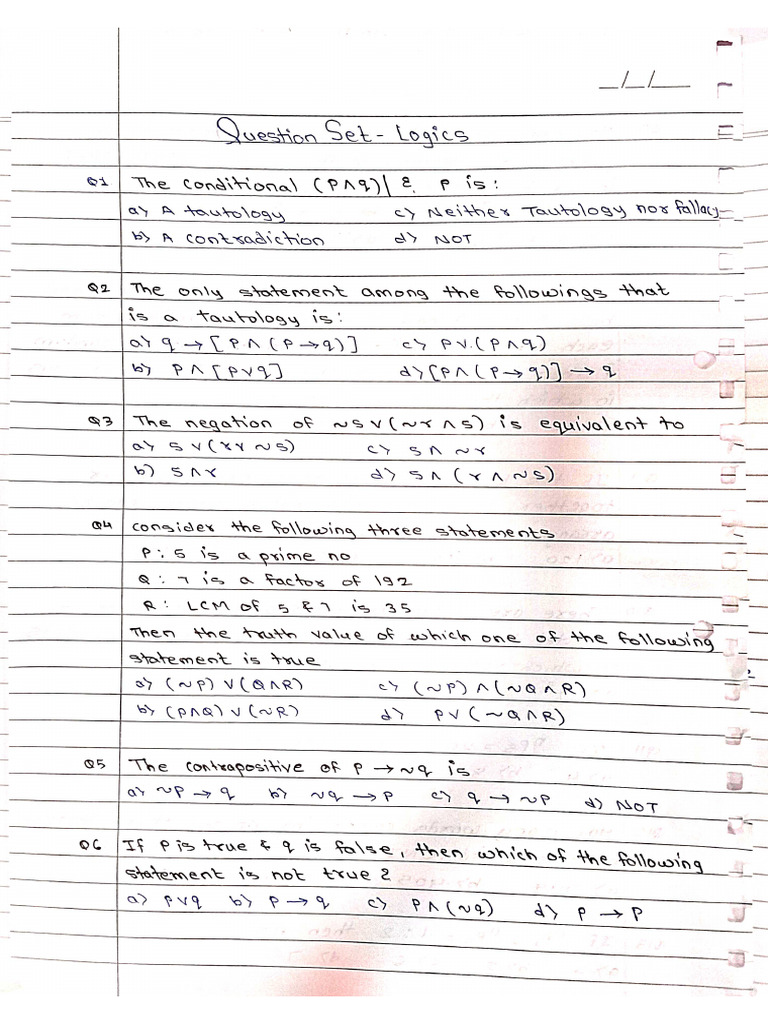 _/_/_
Question Set - Logics
Q1 The conditional (P∧q)| & P is:
a) A tautology c) Neither Tautology nor fallacy
b) A contradiction d) NOT
Q2 The only statement among the followings that
is a tautology is:
a) q → [P∧(P→q)] c) P∨(P∧q)
b) P∧[P∨q] d) [P∧(P→q)] → q
Q3 The negation of ~s∨(~r∧s) is equivalent to
a) s∨(r∨~s) c) s∧~r
b) s∧r d) s∧(r∧~s)
Q4 consider the following three statements
P: 5 is a prime no
Q: 7 is a factor of 192
R: LCM of 5 & 7 is 35
Then the truth value of which one of the following
statement is true
a) (~P)∨(Q∧R) c) (~P)∧(~Q∧R)
b) (P∧Q)∨(~R) d) P∨(~Q∧R)
Q5 The contrapositive of P → ~q is
a) ~P → q b) ~q → P c) q → ~P d) NOT
Q6 If P is true & q is false, then which of the following
statement is not true?
a) P∨q b) P → q c) P∧(~q) d) P → P